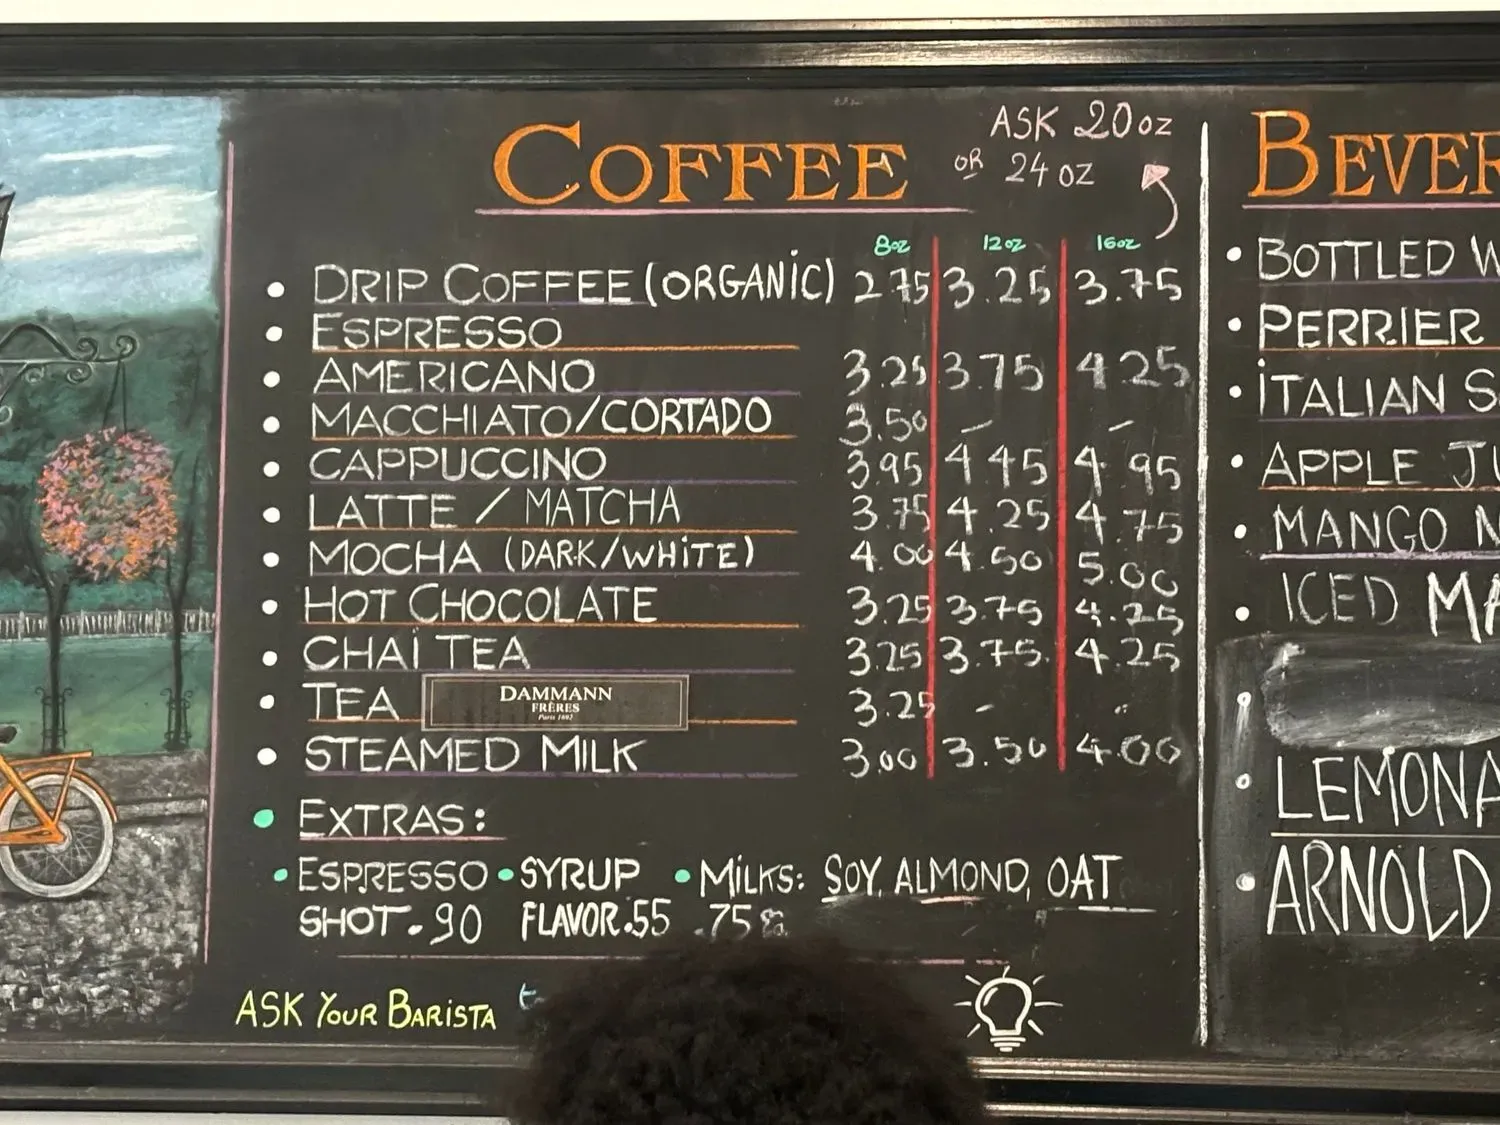 COFFEE
ASK 20oz
OR 24 OZ
8oz 12oz 16oz
• DRIP COFFEE (ORGANIC) 2.75 3.25 3.75
• ESPRESSO
• AMERICANO 3.25 3.75 4.25
• MACCHIATO/CORTADO 3.50 - -
• CAPPUCCINO 3.95 4.45 4.95
• LATTE / MATCHA 3.75 4.25 4.75
• MOCHA (DARK/WHITE) 4.00 4.50 5.00
• HOT CHOCOLATE 3.25 3.75 4.25
• CHAI TEA 3.25 3.75 4.25
• TEA 3.25 - -
DAMMANN
FRÈRES
Paris 1692
• STEAMED MILK 3.00 3.50 4.00
• EXTRAS:
• ESPRESSO • SYRUP • MILKS: SOY, ALMOND, OAT
SHOT .90 FLAVOR .55 .75
ASK YOUR BARISTA
BEVER
• BOTTLED W
• PERRIER
• ITALIAN S
• APPLE JU
• MANGO N
• ICED MA
• LEMONA
• ARNOLD